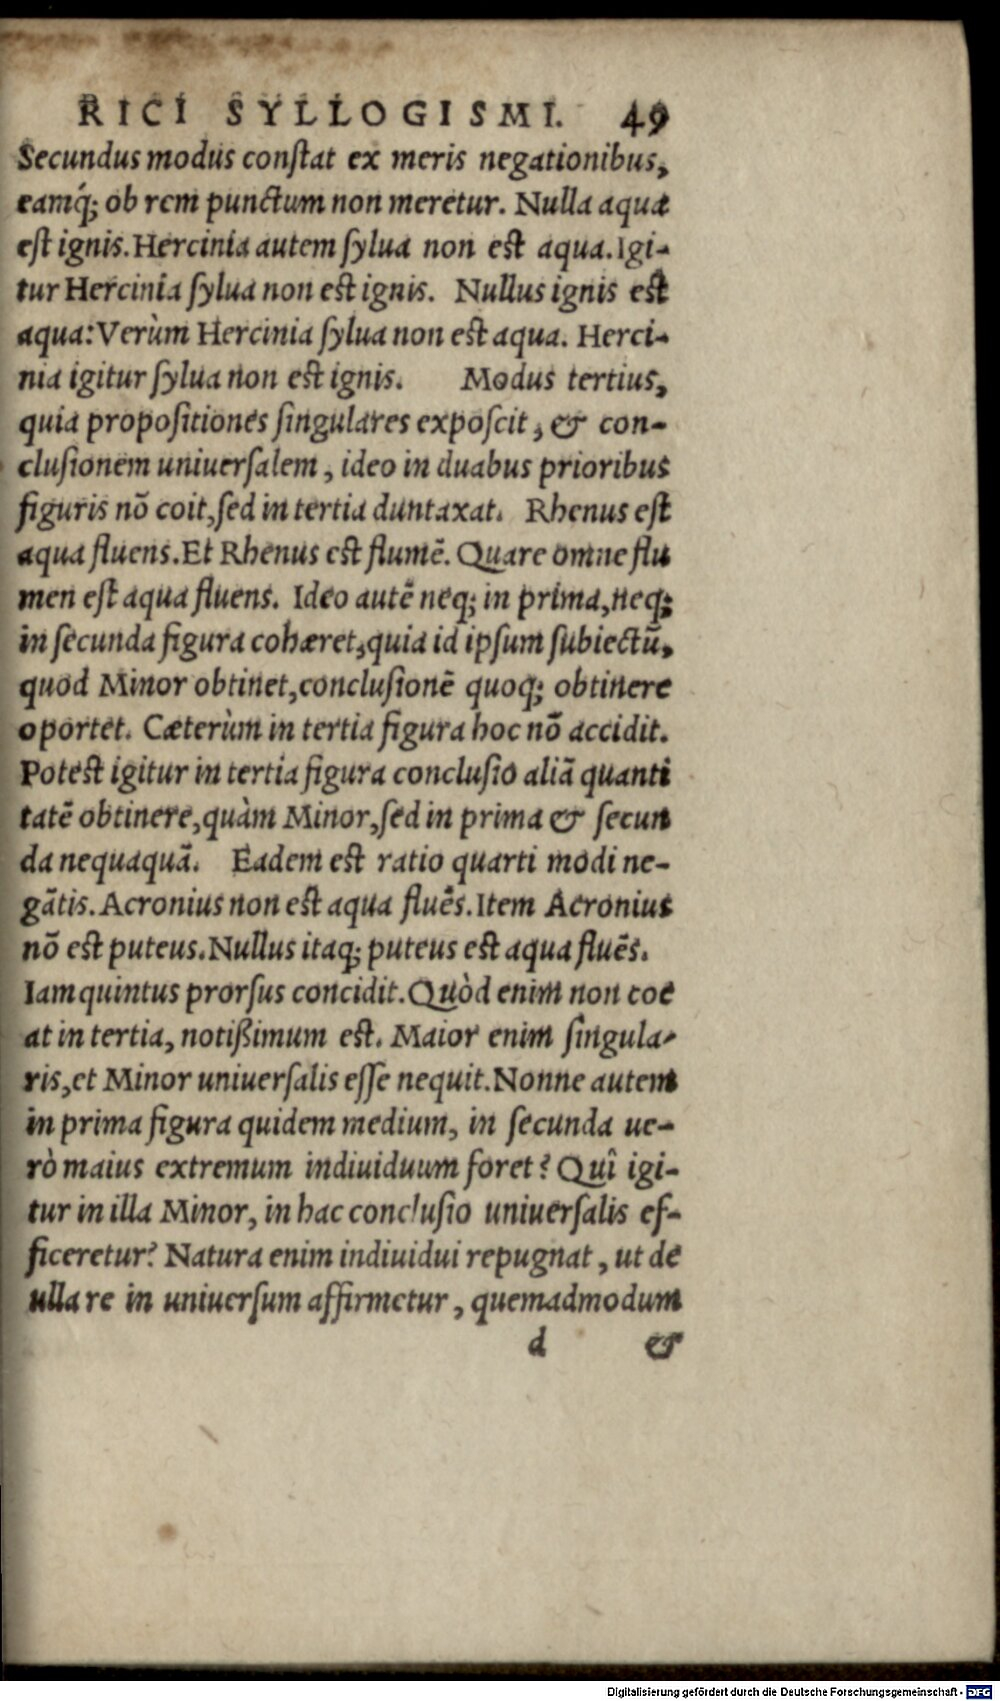 RICI SYLLOGISMI. 49
Secundus modus conſtat ex meris negationibus,
eamq́; ob rem punctum non meretur. Nulla aqua
eſt ignis. Hercinia autem ſylua non est aqua. Igi-
tur Hercinia ſylua non est ignis. Nullus ignis est
aqua: Verùm Hercinia ſylua non est aqua. Herci-
nia igitur ſylua non est ignis. Modus tertius,
quia propoſitiones ſingulares expoſcit, & con-
cluſionem uniuerſalem, ideo in duabus prioribus
figuris nō coit, ſed in tertia duntaxat. Rhenus eſt
aqua fluens. Et Rhenus est flumē. Quare omne flu
men eſt aqua fluens. Ideo autē neq; in prima, neq;
in ſecunda figura cohæret, quia id ipſum ſubiectū,
quod Minor obtinet, concluſionē quoq; obtinere
oportet. Cæterùm in tertia figura hoc nō accidit.
Potest igitur in tertia figura concluſio aliā quanti
tatē obtinere, quàm Minor, ſed in prima & ſecun
da nequaquā. Eadem est ratio quarti modi ne-
gātis. Acronius non est aqua fluēs. Item Acronius
nō est puteus. Nullus itaq; puteus est aqua fluēs.
Iam quintus prorſus concidit. Quòd enim non coë
at in tertia, notißimum est. Maior enim ſingula-
ris, et Minor uniuerſalis eſſe nequit. Nonne autem
in prima figura quidem medium, in ſecunda ue-
rò maius extremum indiuiduum foret? Quî igi-
tur in illa Minor, in hac concluſio uniuerſalis ef-
ficeretur? Natura enim indiuidui repugnat, ut de
ulla re in uniuerſum affirmetur, quemadmodum
d &
Digitalisierung gefördert durch die Deutsche Forschungsgemeinschaft - DFG